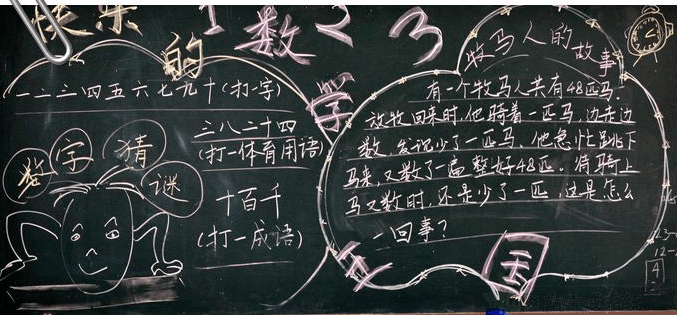 快乐的1数23
学
王国
一二三四五六七九十(打一字)
数字猜谜
三八二十四
(打一体育用语)
十百千
(打一成语)
牧马人的故事
有一个牧马人共有48匹马.
放牧回来时,他骑着一匹马,边走边
数,发现少了一匹马,他急忙跳下
马来,又数了一遍整好48匹.待骑上
马又数时,还是少了一匹,这是怎么
一回事?
12-
4